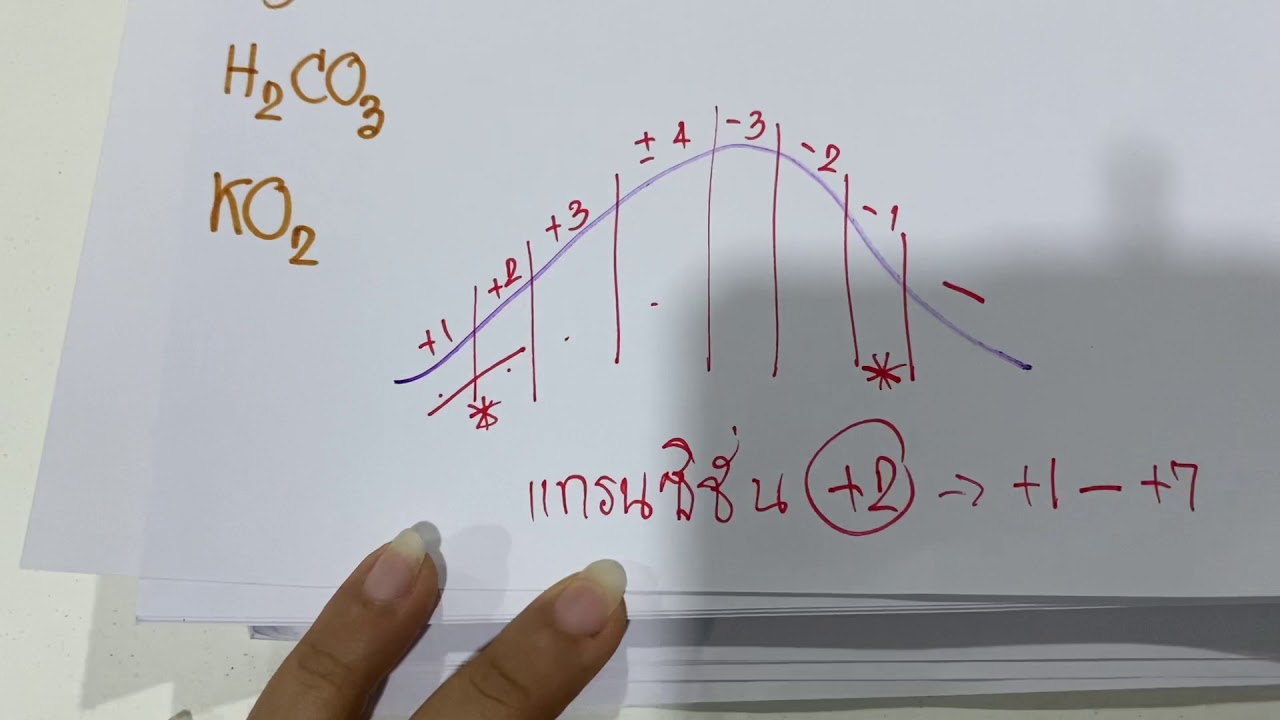 H₂CO₃
KO₂
+1 +2 +3 ± 4 -3 -2 -1 -
* *
แทรนซิชั่น +2 → +1 - +7